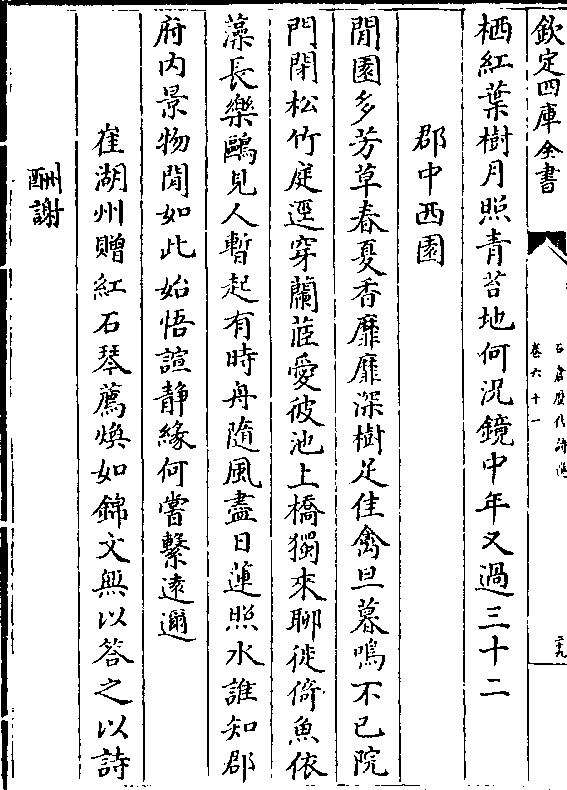 欽定四庫全書
石倉歴代詩選
卷六十一
栖紅葉樹月照青苔地何況鏡中年又過三十二
郡中西園
閒園多芳草春夏香靡靡深樹足佳禽旦暮鳴不已院
門閉松竹庭逕穿蘭茝愛彼池上橋獨來聊徙倚魚依
藻長樂鷗見人暫起有時舟隨風盡日蓮照水誰知郡
府内景物閒如此始悟諠静緣何嘗繫逺邇
崔湖州贈紅石琴薦煥如錦文無以答之以詩
酬謝